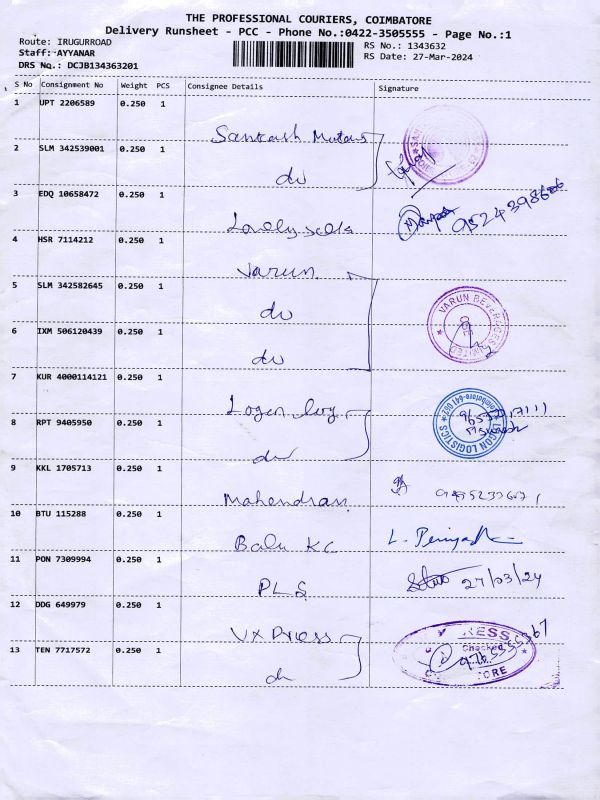 THE PROFESSIONAL COURIERS, COIMBATORE
Delivery Runsheet - PCC - Phone No.:0422-3505555 - Page No.:1
Route: IRUGURROAD RS No.: 1343632
Staff: AYYANAR RS Date: 27-Mar-2024
DRS No.: DCJB134363201
S No Consignment No Weight PCS Consignee Details Signature
1 UPT 2206589 0.250 1
Santhosh Motors
2 SLM 342539001 0.250 1
do
3 EDQ 10658472 0.250 1
Lovely
4 HSR 7114212 0.250 1
Varun
5 SLM 342582645 0.250 1
do
VARUN BEVERAGES LIMITED
6 IXM 506120439 0.250 1
do
7 KUR 4000114121 0.250 1
Logon log
8 RPT 9405950 0.250 1
LOGON LOGISTICS
do
9 KKL 1705713 0.250 1
Mahendran
10 BTU 115288 0.250 1
Balu KC
11 PON 7309994 0.250 1
PLS 27/03/24
12 DDG 649979 0.250 1
VXpress
13 TEN 7717572 0.250 1
Checked
do